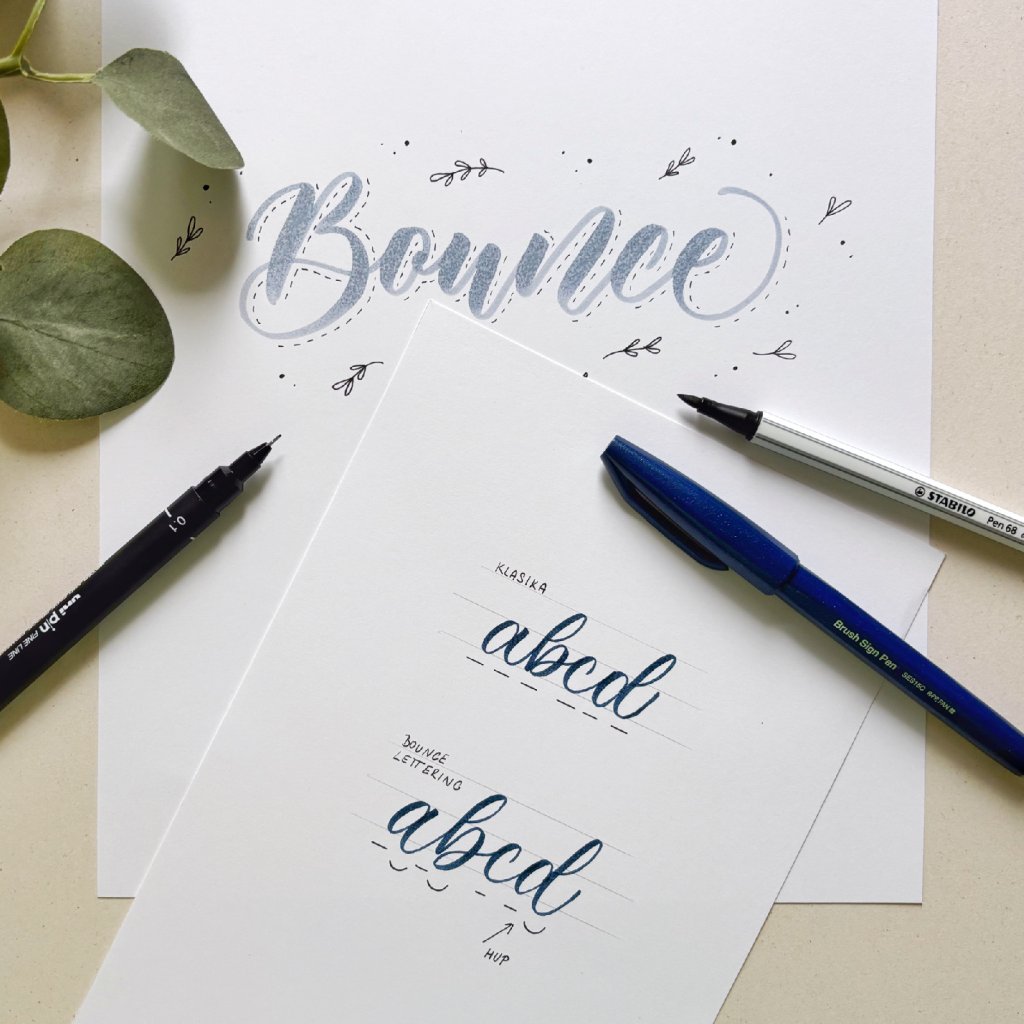 Bounce
STABILO Pen 68
Brush Sign Pen
0.1
uni pin FINE LINE
KLASIKA
abcd
BOUNCE
LETTERING
abcd
HUP